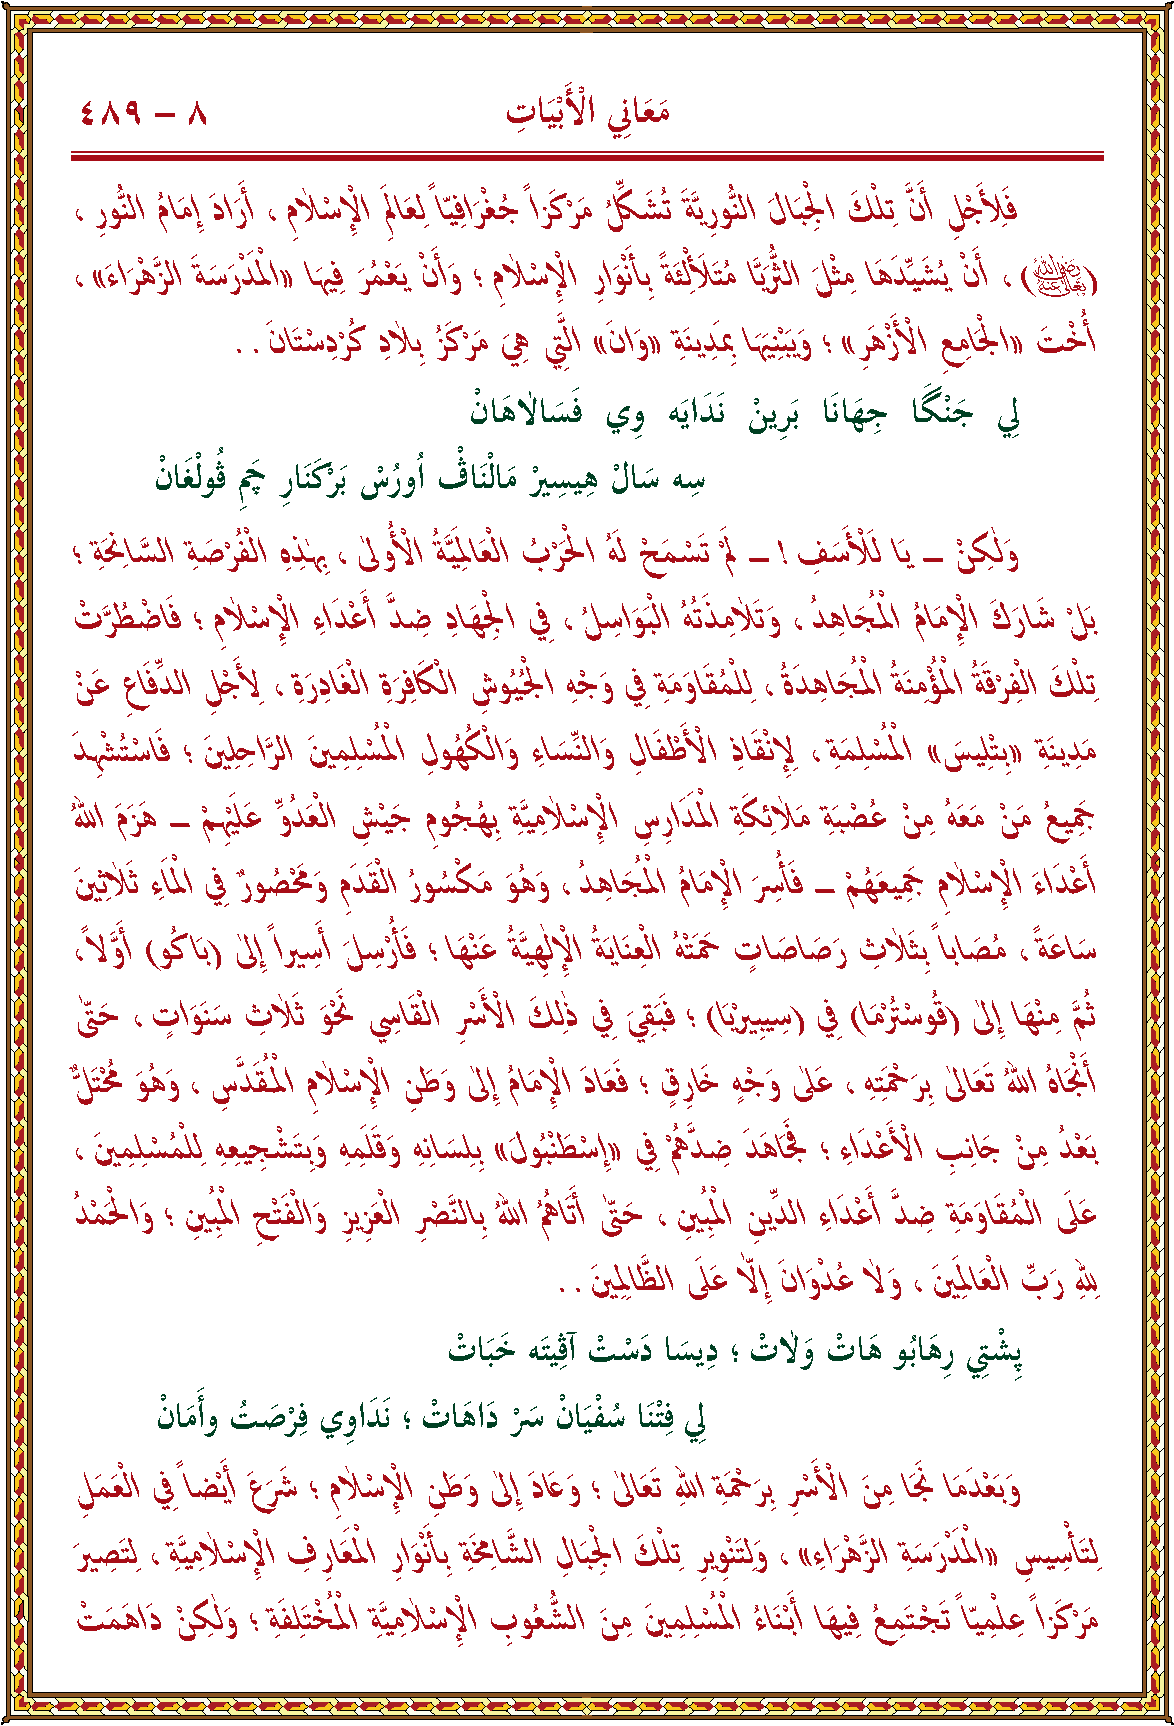 مَعَانِي الْأَبْيَاتِ ٨ – ٤٨٩
فَلِأَجْلِ أَنَّ تِلْكَ الْجِبَالَ النُّورِيَّةَ تُشَكِّلُ مَرْكَزاً جُغْرَافِيّاً لِعَالَمِ الْإِسْلَامِ ، أَرَادَ إِمَامُ النُّورِ ،
(رضي الله تعالى عنه) ، أَنْ يُشَيِّدَهَا مِثْلَ الثُّرَيَّا مُتَلَأْلِئَةً بِأَنْوَارِ الْإِسْلَامِ ؛ وَأَنْ يَعْمُرَ فِيهَا «الْمَدْرَسَةَ الزَّهْرَاءَ» ،
أُخْتَ «الْجَامِعِ الْأَزْهَرِ» ؛ وَيَبْنِيَهَا بِمَدِينَةِ «وَانَ» الَّتِي هِيَ مَرْكَزُ بِلَادِ كُرْدِسْتَانَ . .
لِي جَنْگَا جِهَانَا بَرِينْ نَدَايَه وِي فَسَالَاهَانْ
سِه سَالْ هِيسِيرْ مَالْنَاڤْ اُورُسْ بَرْكَنَارِ چَمِ ڤُولْغَانْ
وَلَٰكِنْ – يَا لَلْأَسَفِ ! – لَمْ تَسْمَحْ لَهُ الْحَرْبُ الْعَالَمِيَّةُ الْأُولَىٰ ، بِهٰذِهِ الْفُرْصَةِ السَّانِحَةِ ؛
بَلْ شَارَكَ الْإِمَامُ الْمُجَاهِدُ ، وَتَلَامِذَتُهُ الْبَوَاسِلُ ، فِي الْجِهَادِ ضِدَّ أَعْدَاءِ الْإِسْلَامِ ؛ فَاضْطُرَّتْ
تِلْكَ الْفِرْقَةُ الْمُؤْمِنَةُ الْمُجَاهِدَةُ ، لِلْمُقَاوَمَةِ فِي وَجْهِ الْجُيُوشِ الْكَافِرَةِ الْغَادِرَةِ ، لِأَجْلِ الدِّفَاعِ عَنْ
مَدِينَةِ «بِتْلِيسَ» الْمُسْلِمَةِ ، لِإِنْقَاذِ الْأَطْفَالِ وَالنِّسَاءِ وَالْكُهُولِ الْمُسْلِمِينَ الرَّاحِلِينَ ؛ فَاسْتُشْهِدَ
جَمِيعُ مَنْ مَعَهُ مِنْ عُصْبَةِ مَلَائِكَةِ الْمَدَارِسِ الْإِسْلَامِيَّةِ بِهُجُومِ جَيْشِ الْعَدُوِّ عَلَيْهِمْ – هَزَمَ اللهُ
أَعْدَاءَ الْإِسْلَامِ جَمِيعَهُمْ – فَأُسِرَ الْإِمَامُ الْمُجَاهِدُ ، وَهُوَ مَكْسُورُ الْقَدَمِ وَمَحْصُورٌ فِي الْمَاءِ ثَلَاثِينَ
سَاعَةً ، مُصَاباً بِثَلَاثِ رَصَاصَاتٍ حَمَتْهُ الْعِنَايَةُ الْإِلٰهِيَّةُ عَنْهَا ؛ فَأُرْسِلَ أَسِيراً إِلَىٰ (بَاكُو) أَوَّلاً،
ثُمَّ مِنْهَا إِلَىٰ (قُوسْتُرْمَا) فِي (سِيبِيرْيَا) ؛ فَبَقِيَ فِي ذٰلِكَ الْأَسْرِ الْقَاسِي نَحْوَ ثَلَاثِ سَنَوَاتٍ ، حَتَّىٰ
أَنْجَاهُ اللهُ تَعَالَىٰ بِرَحْمَتِهِ ، عَلَىٰ وَجْهٍ خَارِقٍ ؛ فَعَادَ الْإِمَامُ إِلَىٰ وَطَنِ الْإِسْلَامِ الْمُقَدَّسِ ، وَهُوَ مُحْتَلٌّ
بَعْدُ مِنْ جَانِبِ الْأَعْدَاءِ ؛ فَجَاهَدَ ضِدَّهُمْ فِي «إِسْطَنْبُولَ» بِلِسَانِهِ وَقَلَمِهِ وَبِتَشْجِيعِهِ لِلْمُسْلِمِينَ ،
عَلَى الْمُقَاوَمَةِ ضِدَّ أَعْدَاءِ الدِّينِ الْمُبِينِ ، حَتَّىٰ أَتَاهُمُ اللهُ بِالنَّصْرِ الْعَزِيزِ وَالْفَتْحِ الْمُبِينِ ؛ وَالْحَمْدُ
لِلهِ رَبِّ الْعَالَمِينَ ، وَلَا عُدْوَانَ إِلَّا عَلَى الظَّالِمِينَ . .
پِشْتِي رِهَابُو هَاتْ وَلَاتْ ؛ دِيسَا دَسْتْ آڤِيتَه خَبَاتْ
لِي فِتْنَا سُفْيَانْ سَرْ دَاهَاتْ ؛ نَدَاوِي فِرْصَتُ وأَمَانْ
وَبَعْدَمَا نَجَا مِنَ الْأَسْرِ بِرَحْمَةِ اللهِ تَعَالَىٰ ؛ وَعَادَ إِلَىٰ وَطَنِ الْإِسْلَامِ ؛ شَرَعَ أَيْضاً فِي الْعَمَلِ
لِتَأْسِيسِ «الْمَدْرَسَةِ الزَّهْرَاءِ» ، وَلِتَنْوِيرِ تِلْكَ الْجِبَالِ الشَّامِخَةِ بِأَنْوَارِ الْمَعَارِفِ الْإِسْلَامِيَّةِ ، لِتَصِيرَ
مَرْكَزاً عِلْمِيّاً تَجْتَمِعُ فِيهَا أَبْنَاءُ الْمُسْلِمِينَ مِنَ الشُّعُوبِ الْإِسْلَامِيَّةِ الْمُخْتَلِفَةِ ؛ وَلَٰكِنْ دَاهَمَتْ